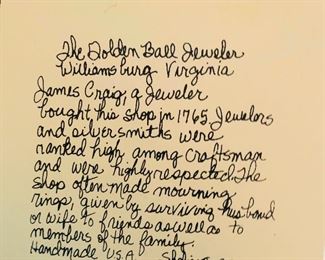 The Golden Ball Jeweler
Williamsburg Virginia
James Craig, a Jeweler
bought this shop in 1765. Jewelors
and silversmiths were
ranked high among Craftsman
and were highly respected. The
shop often made mourning
rings, given by surviving husband
or wife to friends as well as to
members of the family.
Handmade U.S.A